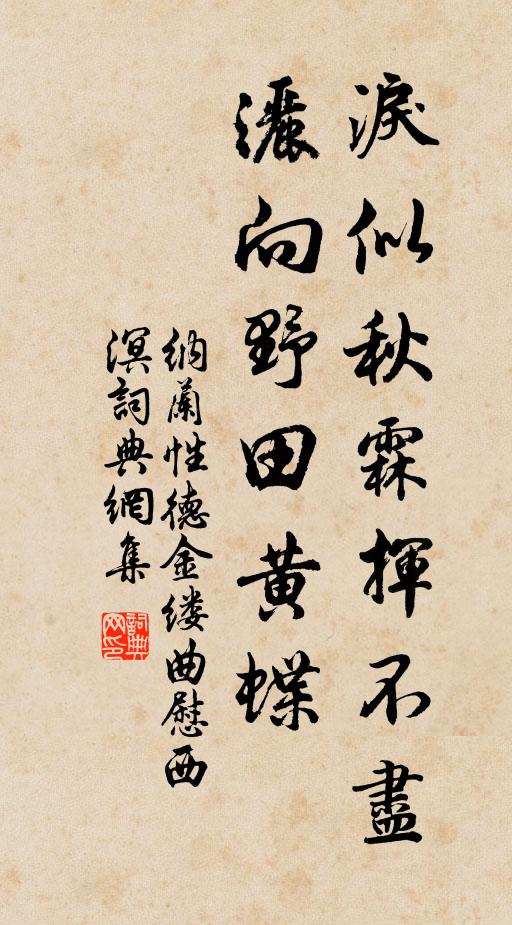 淚似秋霖揮不盡
灑向野田黃蝶
納蘭性德金缕曲慰西
溟詞典網集
詞典
网印